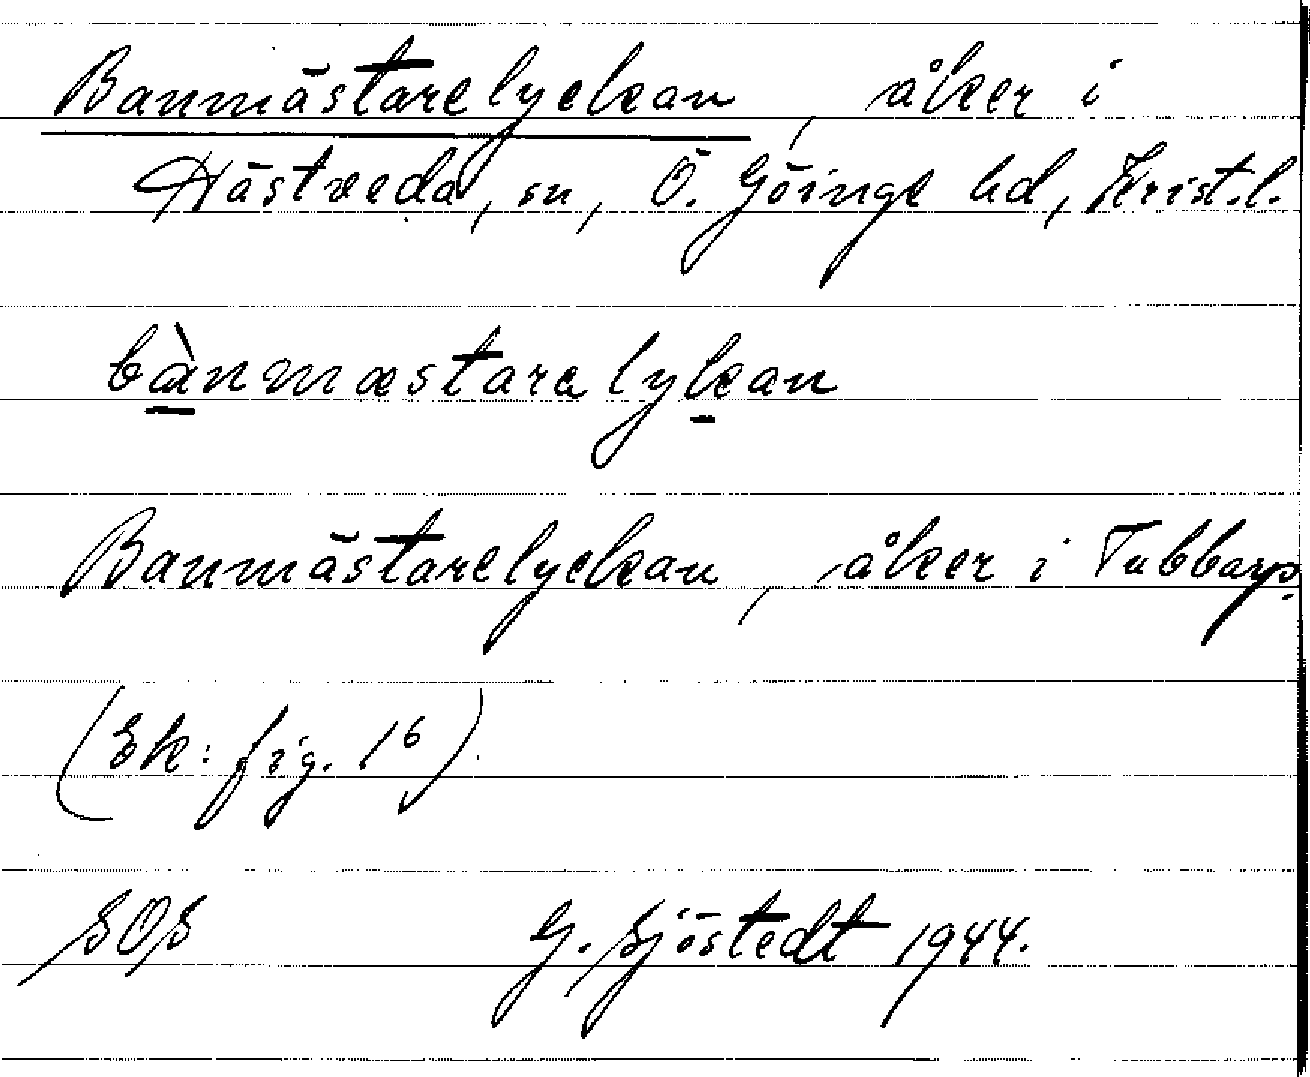 Banmästarelyckan, åker i
Hästveda, sn, Ö. Göinge hd, Krist.l.
bànmæstaralykan
Banmästarelyckan, åker i Tubbarp.
(Ek: fig. 16).
SOS G. Sjöstedt 1944.